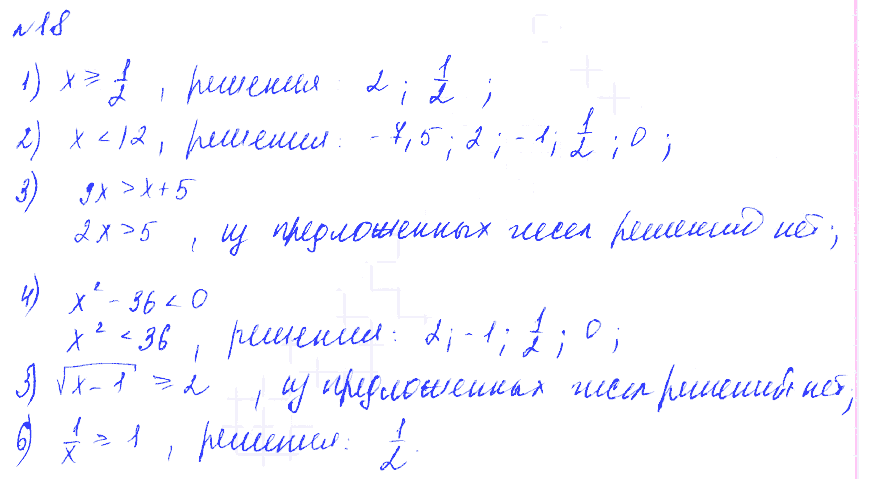 №18
1) x ≥ 1/2 , решения: 2 ; 1/2 ;
2) x < 12 , решения: -7,5 ; 2 ; -1 ; 1/2 ; 0 ;
3) 3x > x + 5
2x > 5 , из предложенных чисел решений нет ;
4) x² - 36 < 0
x² < 36 , решения: 2 ; -1 ; 1/2 ; 0 ;
5) √(x-1) ≥ 2 , из предложенных чисел решений нет ;
6) 1/x ≥ 1 , решения: 1/2 .